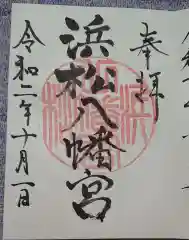 奉拝
浜松八幡宮
令和二年十月一日